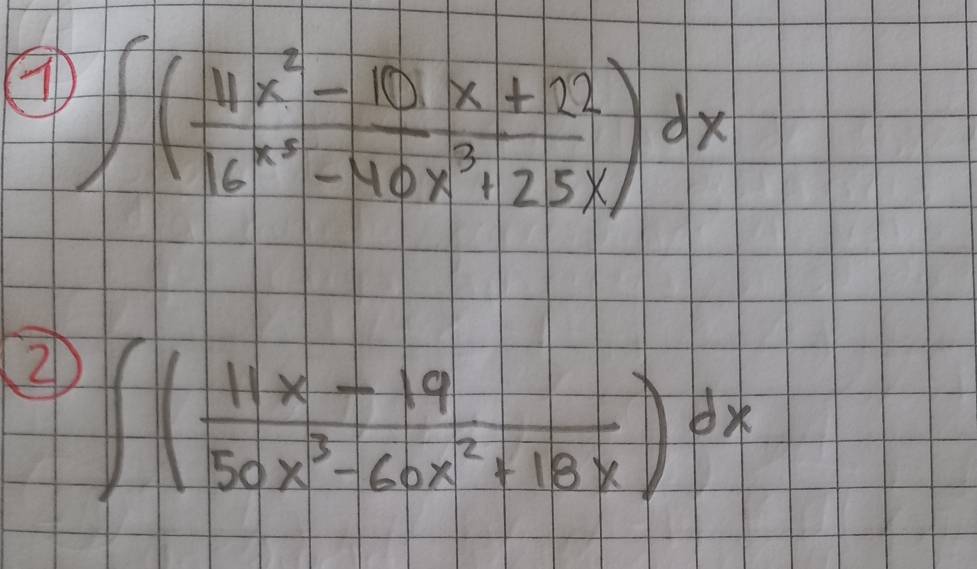 ① ∫ ( (11x² - 10x + 22) / (16x⁵ - 40x³ + 25x) ) dx
② ∫ ( (11x - 19) / (50x³ - 60x² + 18x) ) dx